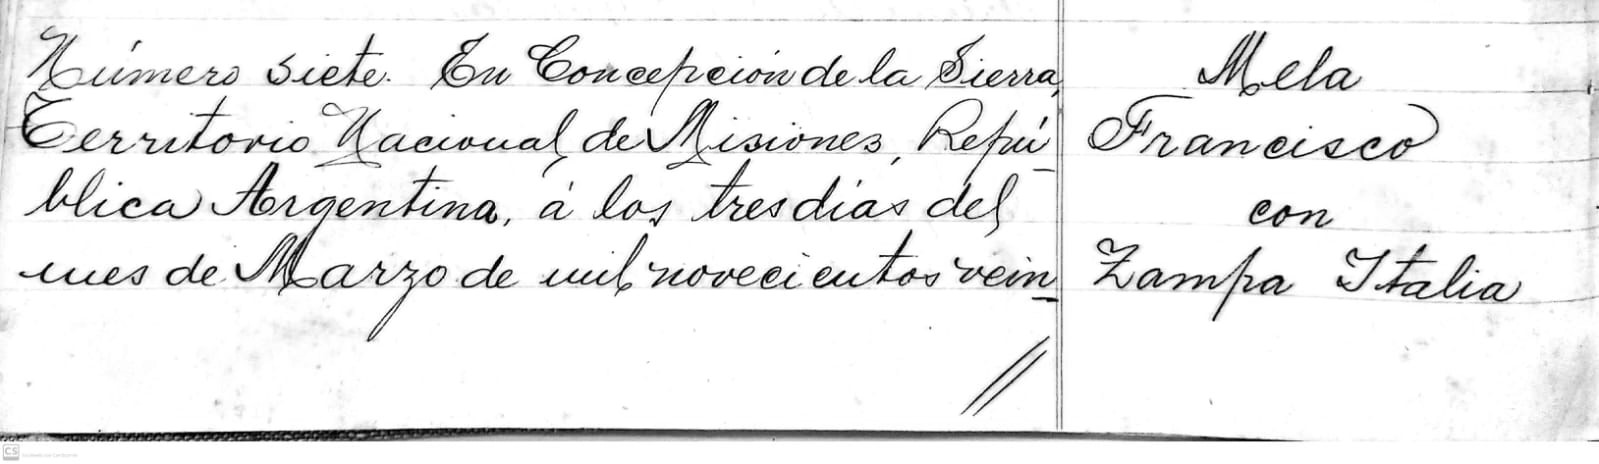 Número siete. En Concepción de la Sierra,
Territorio Nacional de Misiones, Repú
blica Argentina, á los tres dias del
mes de Marzo de mil novecientos vein
Mela
Francisco
con
Zampa Italia
CS